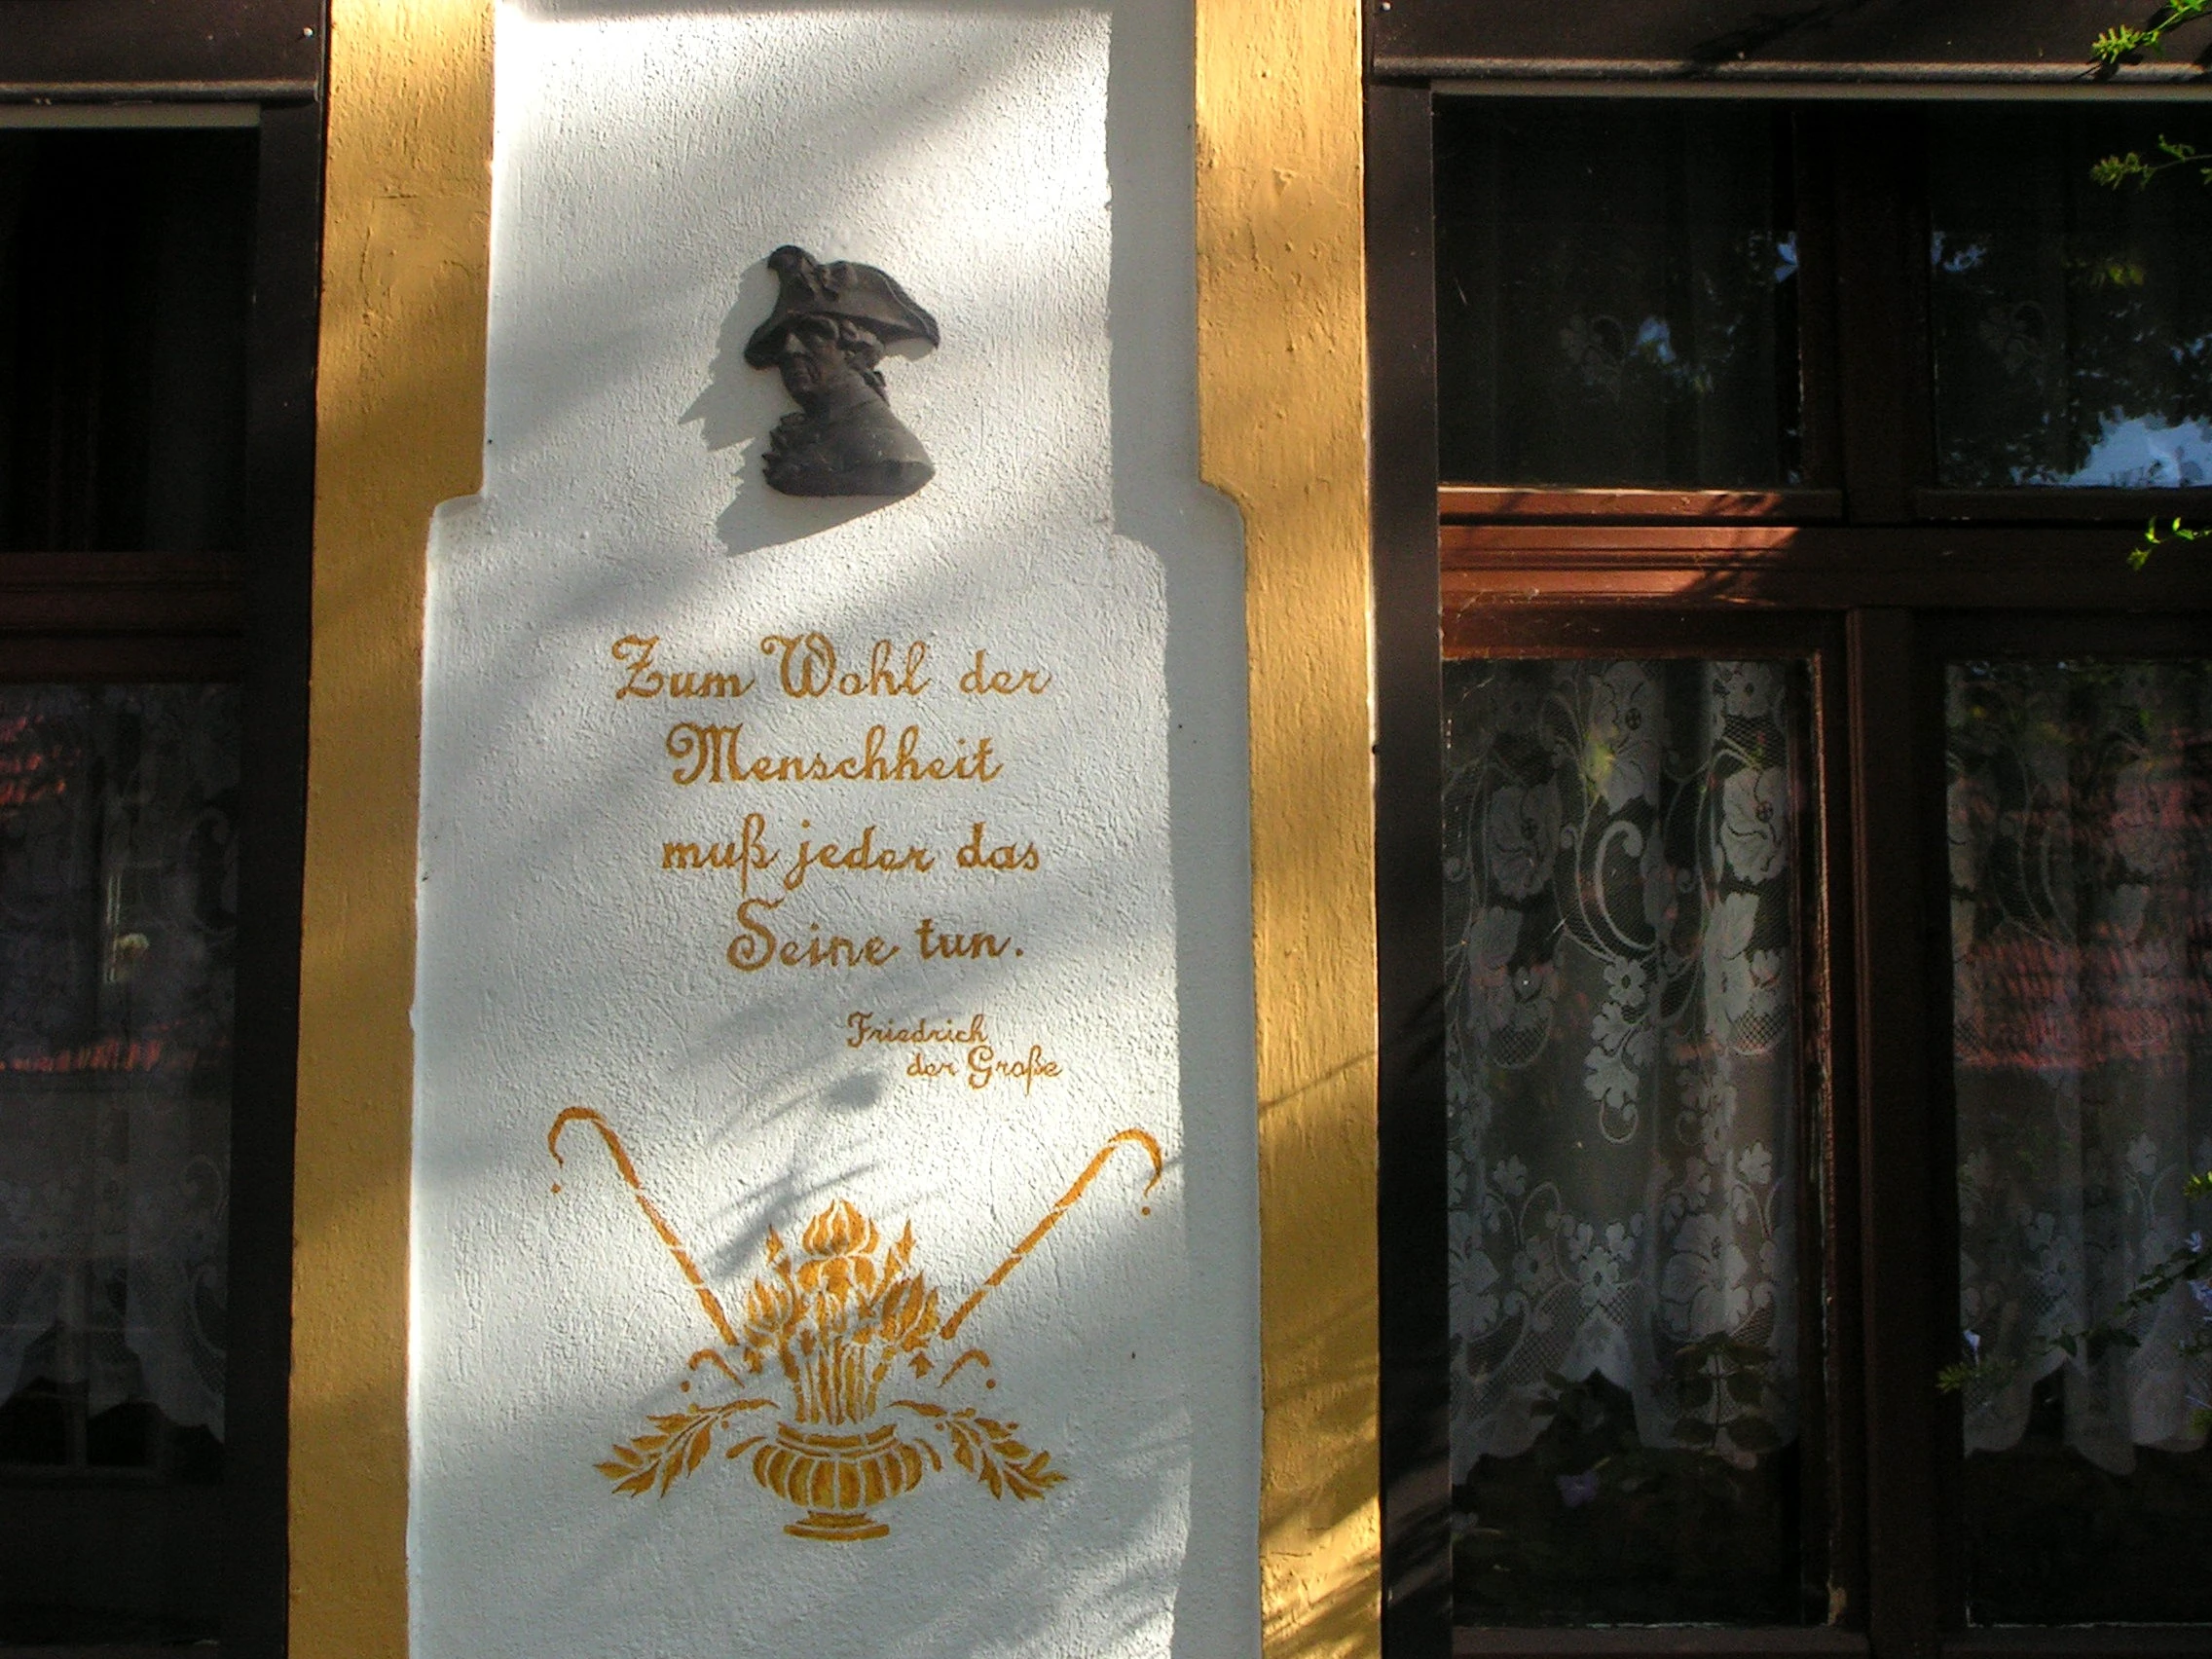 Zum Wohl der
Menschheit
muß jeder das
Seine tun.
Friedrich
der Große